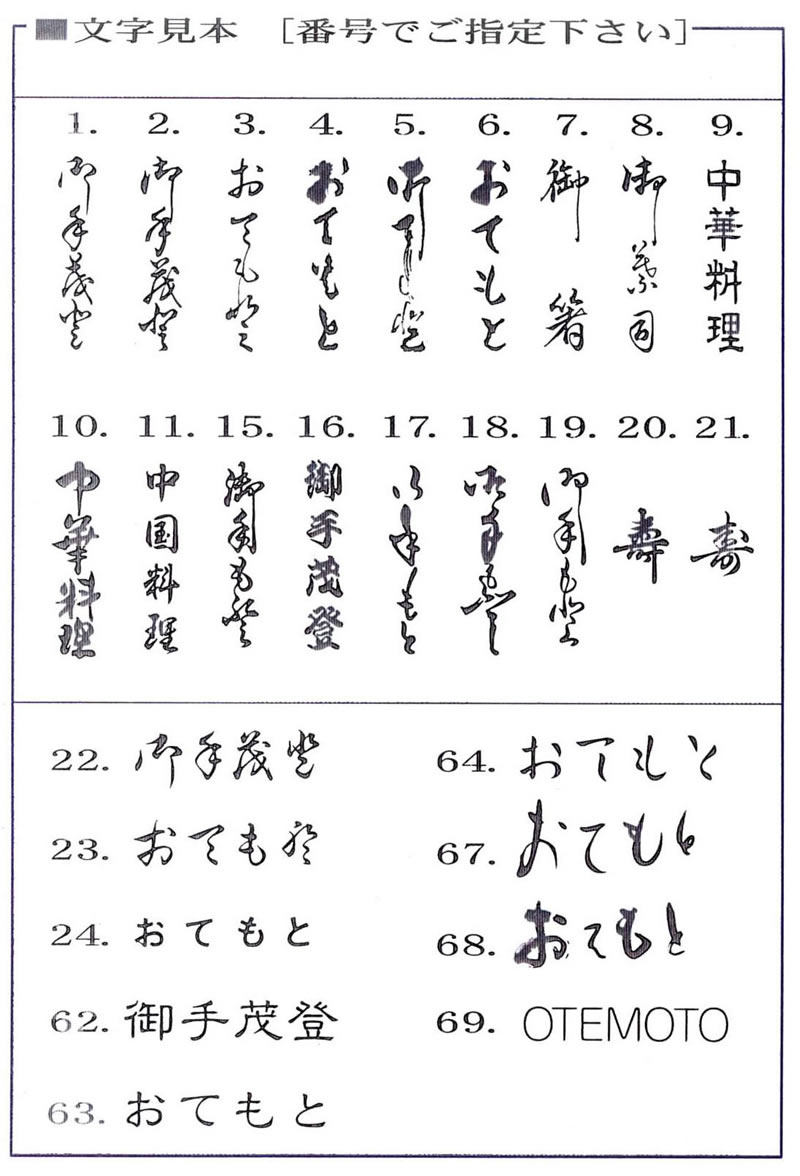 ■文字見本 [番号でご指定下さい]
1.
御手茂登
2.
御手茂登
3.
おても登
4.
おてもと
5.
6.
おてもと
7.
御箸
8.
御菓司
9.
中華料理
10.
中華料理
11.
中国料理
15.
御手も登
16.
御手茂登
17.
18.
御手も登
19.
御手も登
20.
壽
21.
寿
22. 御手茂登
23. おても登
24. おてもと
62. 御手茂登
63. おてもと
64. おてもと
67. おてもと
68. おてもと
69. OTEMOTO